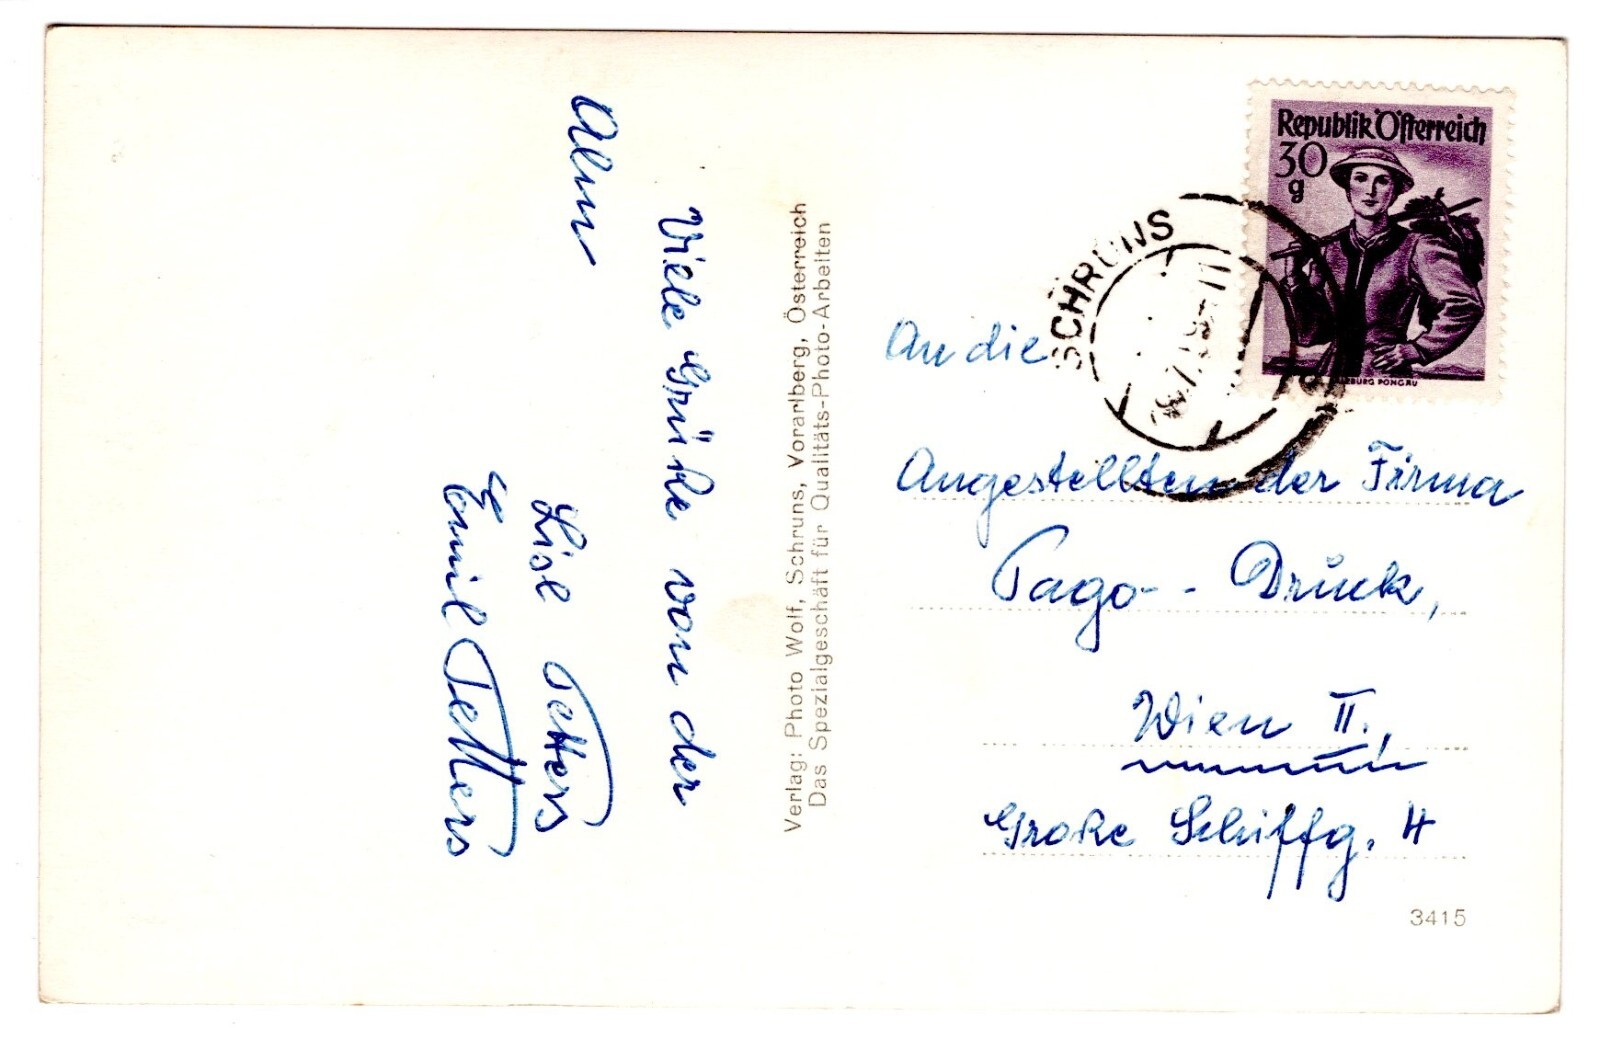 Viele Grüße von der
Alm
Lisl Tetters
Emil Tetters
Verlag: Photo Wolf, Schruns, Vorarlberg, Österreich
Das Spezialgeschäft für Qualitäts-Photo-Arbeiten
Republik Österreich
30
g
SALZBURG PONGAU
SCHRUNS
An die
Angestellten der Firma
Pago-Druck,
Wien II.,
Große Schiffg. 4
3415